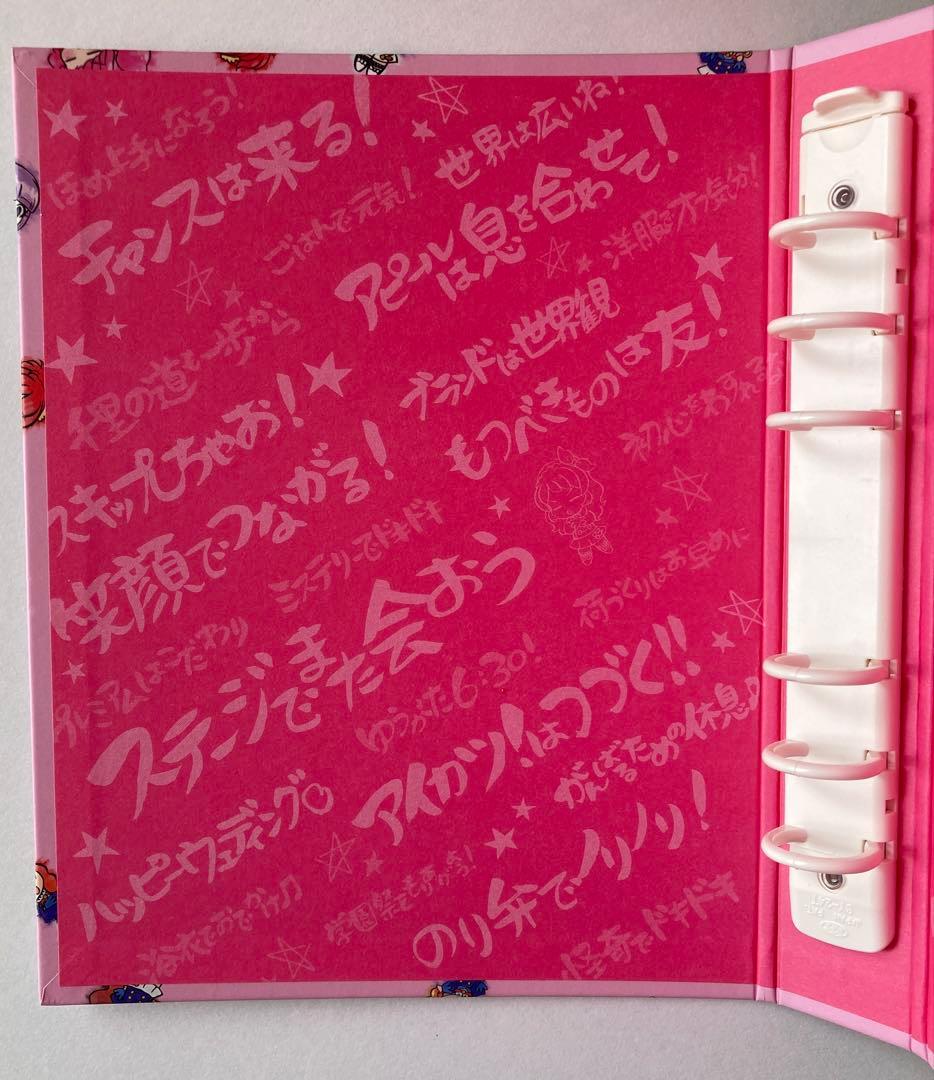 ほめ上手になろう!
チャンスは来る!
ごはんで元気!
世界は広いね!
アピールは息を合わせて!
洋服でオフ気分!
千里の道も一歩から
スキップちゃお!
ブランドは世界観
もつべきものは友!
初心をわすれるな
笑顔でつながる!
ミステリーでドキドキ
荷づくりはお早めに
プレミアムはこだわり
ステージでまた会おう
ゆうがた6:30!
アイカツ!はつづく!!
がんばるための休息
ハッピーウェディング
のり弁でノリノリ!
浴衣でおでかけ♪
怪奇でドキドキ